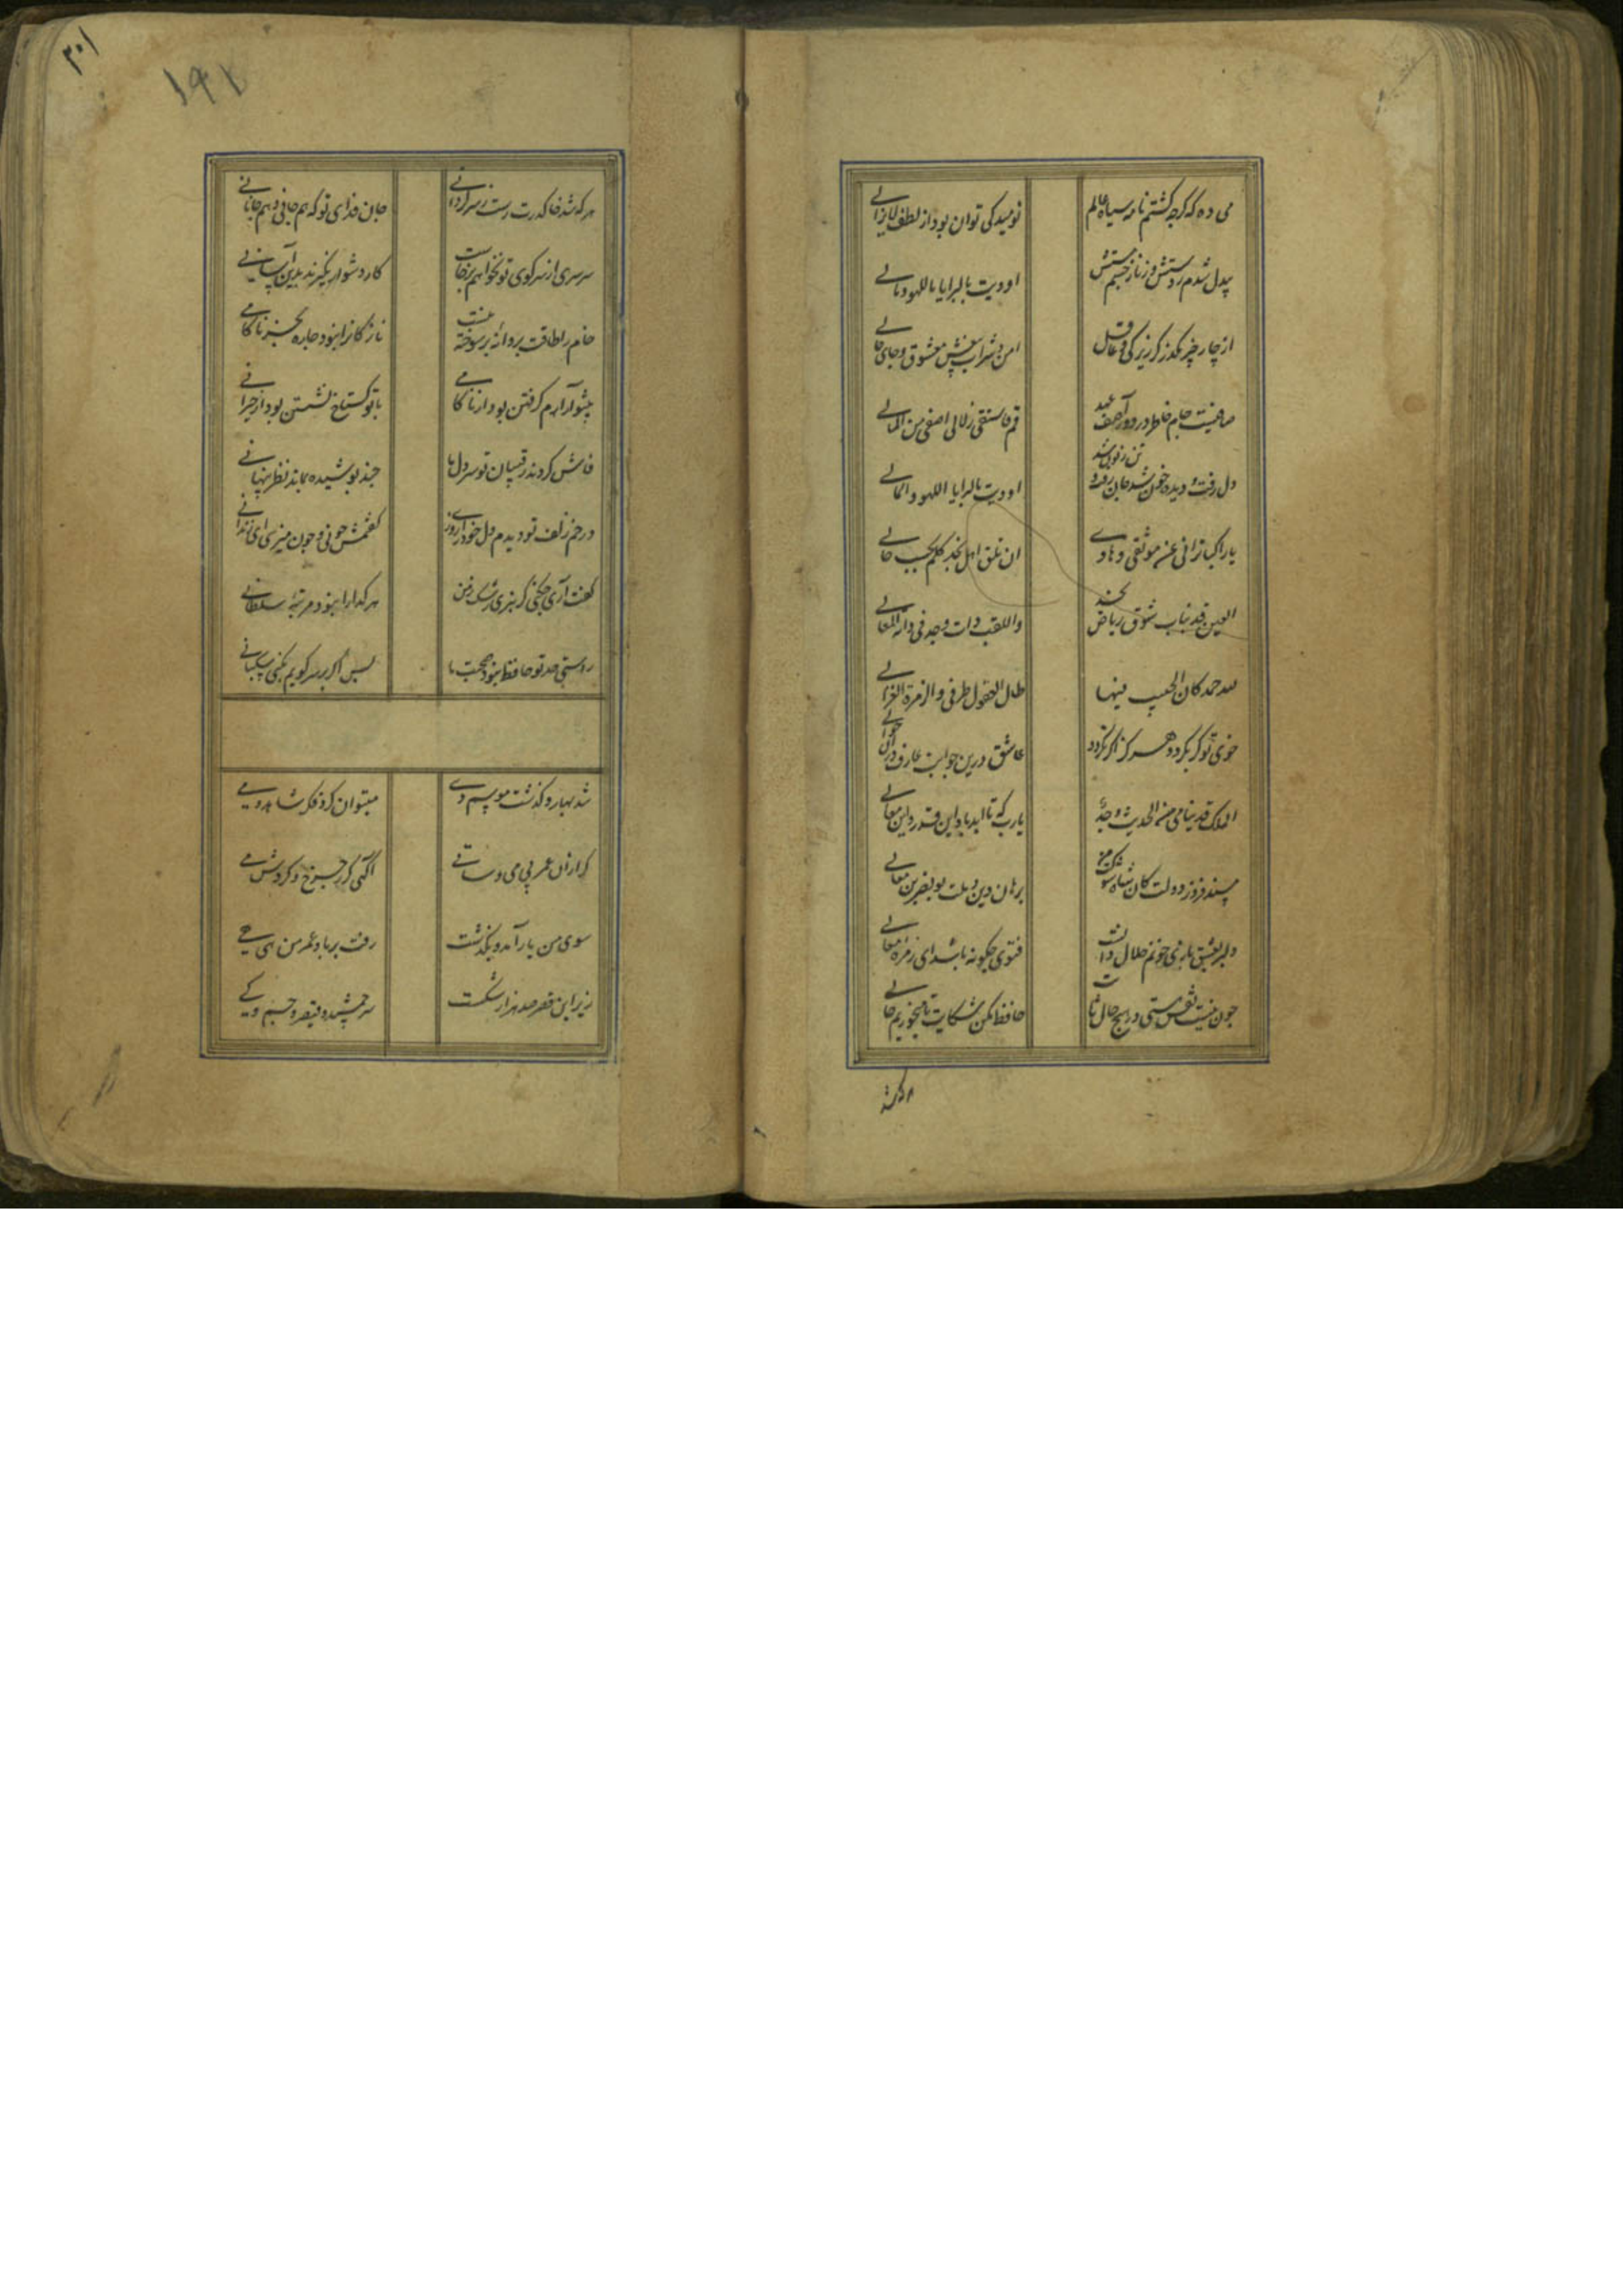 می ده که گرچه گشتم نامه سیاه عالم
نومید کی توان بود از لطف لایزالی
بیدل شدم ز دستش وز ناز چشم مستش
اودیت بالبرایا باللهو
از چار چیز مگذر گر زیرکی و عاقل
امن و شراب بیغش معشوق و جای خالی
صافیست جام خاطر در دور آصف عهد
قم فاسقنی زلالی اصفی من
دل رفت و دیده خون شد جان رفت و تن زبون شد
اودیت بالبرایا اللهو
یا راکبا
عن موثقی و هادی
ان تلق اهل نجد کلم بحبب حالی
العین
شوق ریاض نجد
والقلب ذات وجد فی دائه
لله حمد کان الحبیب فیها
طال العقول طرفی والزمرة
خوی تو گر نگردد هرگز اگر نگردد
عاشق درین جوابت عارف دران حوالی
الملک قد
من
وجد
یارب که تا ابد باد این قدر و این معالی
مسند فروز دولت کان شکوه و شوکت
برهان دین و ملت بونصر بن معالی
دلبر بعشق بازی خونم حلال دانست
فتوی چگونه باشد ای زمره معالی
چون نیست نقش هستی در هیچ حال ثابت
حافظ مکن شکایت تا می خوریم حالی
هر که شد خاک درت رست ز سرگردانی
جان فدای تو که هم جانی و هم جانانی
سرسری از سر کوی تو نخواهم برخاست
کار دشوار نگیرند بدین آسانی
خام را طاقت پروانه پر سوخته نیست
نازکانرا نبود چاره بجز ناکامی
بیتو آرام گرفتن بود از ناکامی
با تو گستاخ نشستن بود از حیرانی
فاش کردند رقیبان تو سر دل ما
چند پوشیده بماند نظر پنهانی
در خم زلف تو دیدم دل خود را روزی
گفتمش چونی و چون میزی ای زندانی
گفت آری چکنی گر نبری رشک ز من
هر گدا را نبود مرتبه سلطانی
راستی حد تو حافظ نبود صحبت ما
بس اگر بر سر کویم بکنی سکبانی
شد بهار و گذشت موسم دی
میتوان کرد فکر شاهد و می
گذران عمر بی می و ساقی
آگهی گر ز چرخ و گردش
سوی من یار آمد و بگذشت
رفت برباد عمر من هی هی
زیر این قصر صد هزار شکست
سر جمشید و قیصر و جسم و کی
هر که شد
۱۹۱
۳۰۱